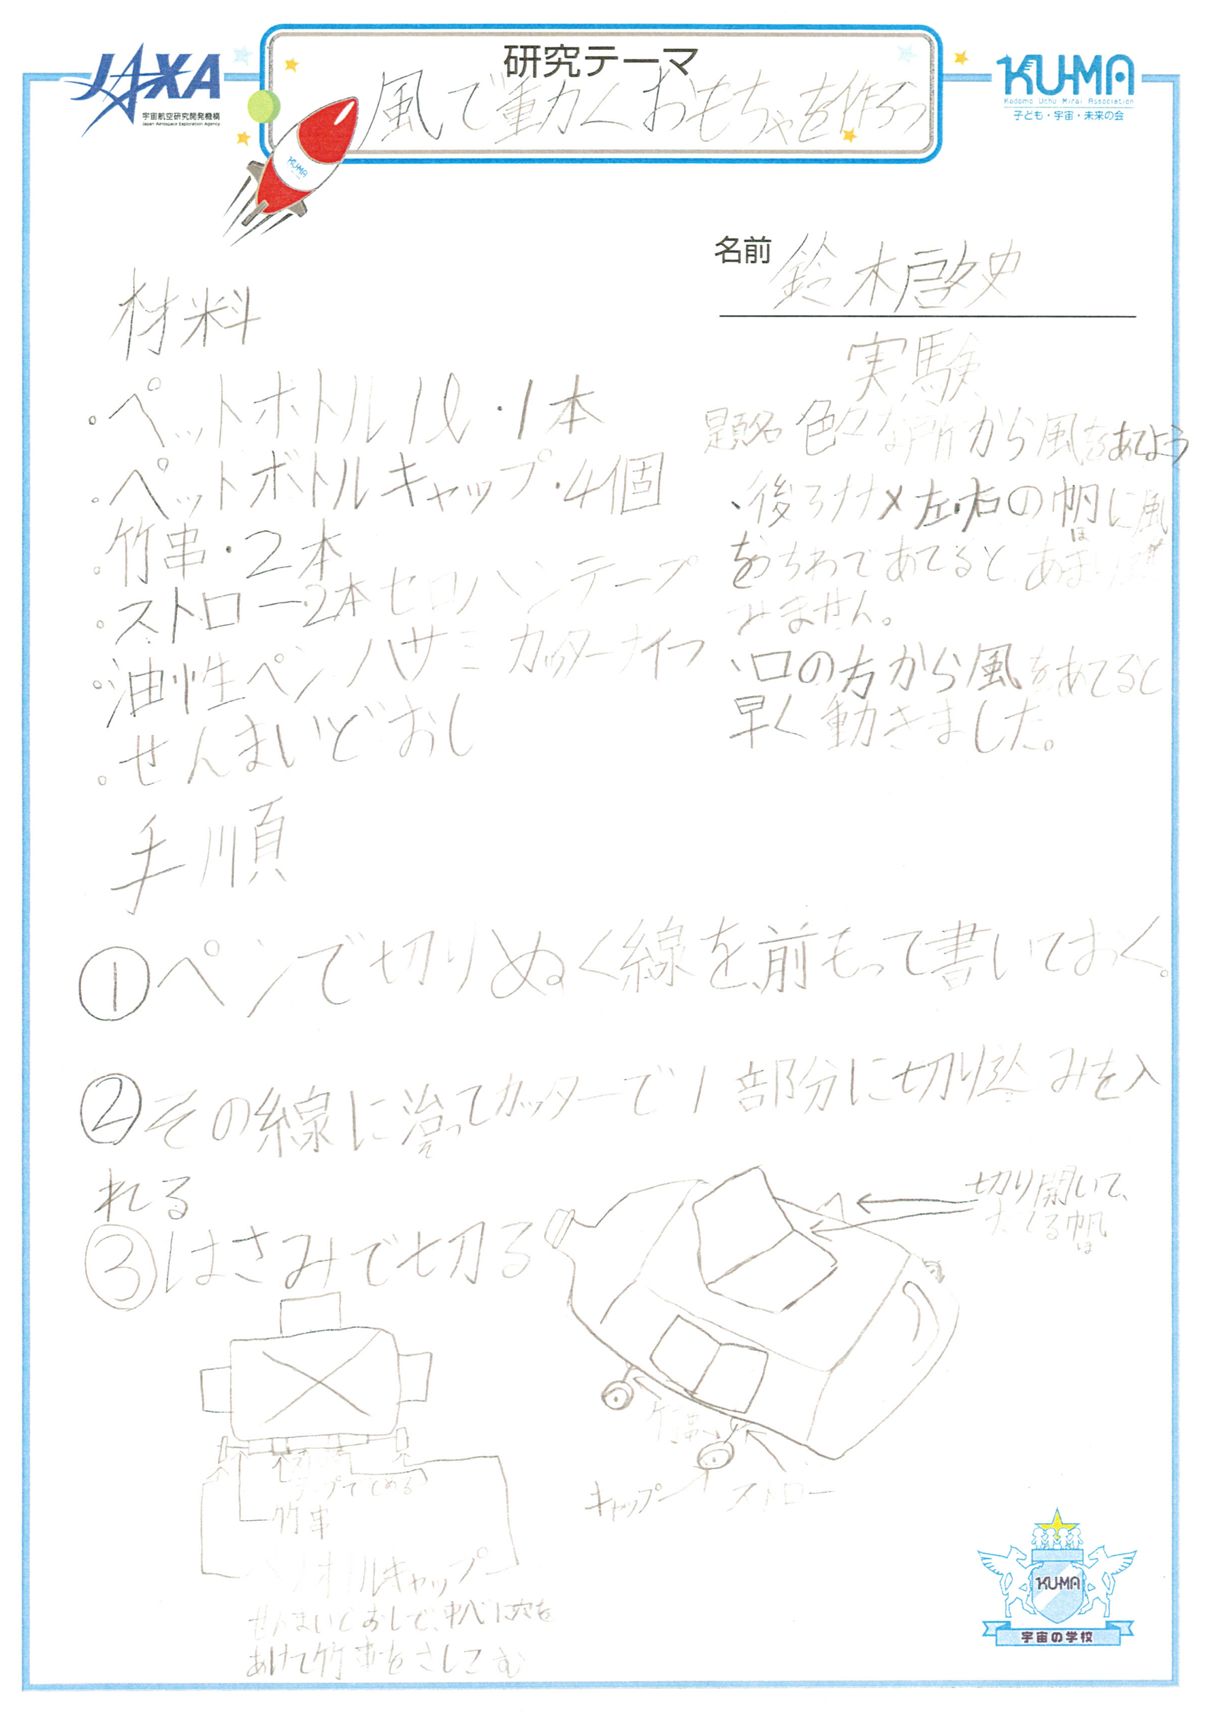 JAXA
宇宙航空研究開発機構
Japan Aerospace Exploration Agency
研究テーマ
風で動くおもちゃを作ろう
KU-MA
Kodomo Uchu Mirai Association
子ども・宇宙・未来の会
KU-MA
名前 鈴木啓史
材料
・ペットボトル1ℓ・1本
・ペットボトルキャップ・4個
・竹串・2本
・ストロー・2本 セロハンテープ
・油性ペン ハサミ カッターナイフ
・せんまいどおし
実験
題名 色々な所から風をあてよう
、後ろナナメ左・右の帆に風
ほ
をうちわであてると、あまり進
みません。
、口の方から風をあてると
早く動きました。
手順
①ペンで切りぬく線を前もって書いておく。
②その線に沿ってカッターで1部分に切り込みを入
れる
③はさみで切る
切り開いて、
立てる帆
ほ
竹串
キャップ
ストロー
テープでとめる
竹串
ボトルキャップ
せんまいどおしで、中心に穴を
あけて竹串をさしこむ
KU-MA
宇宙の学校